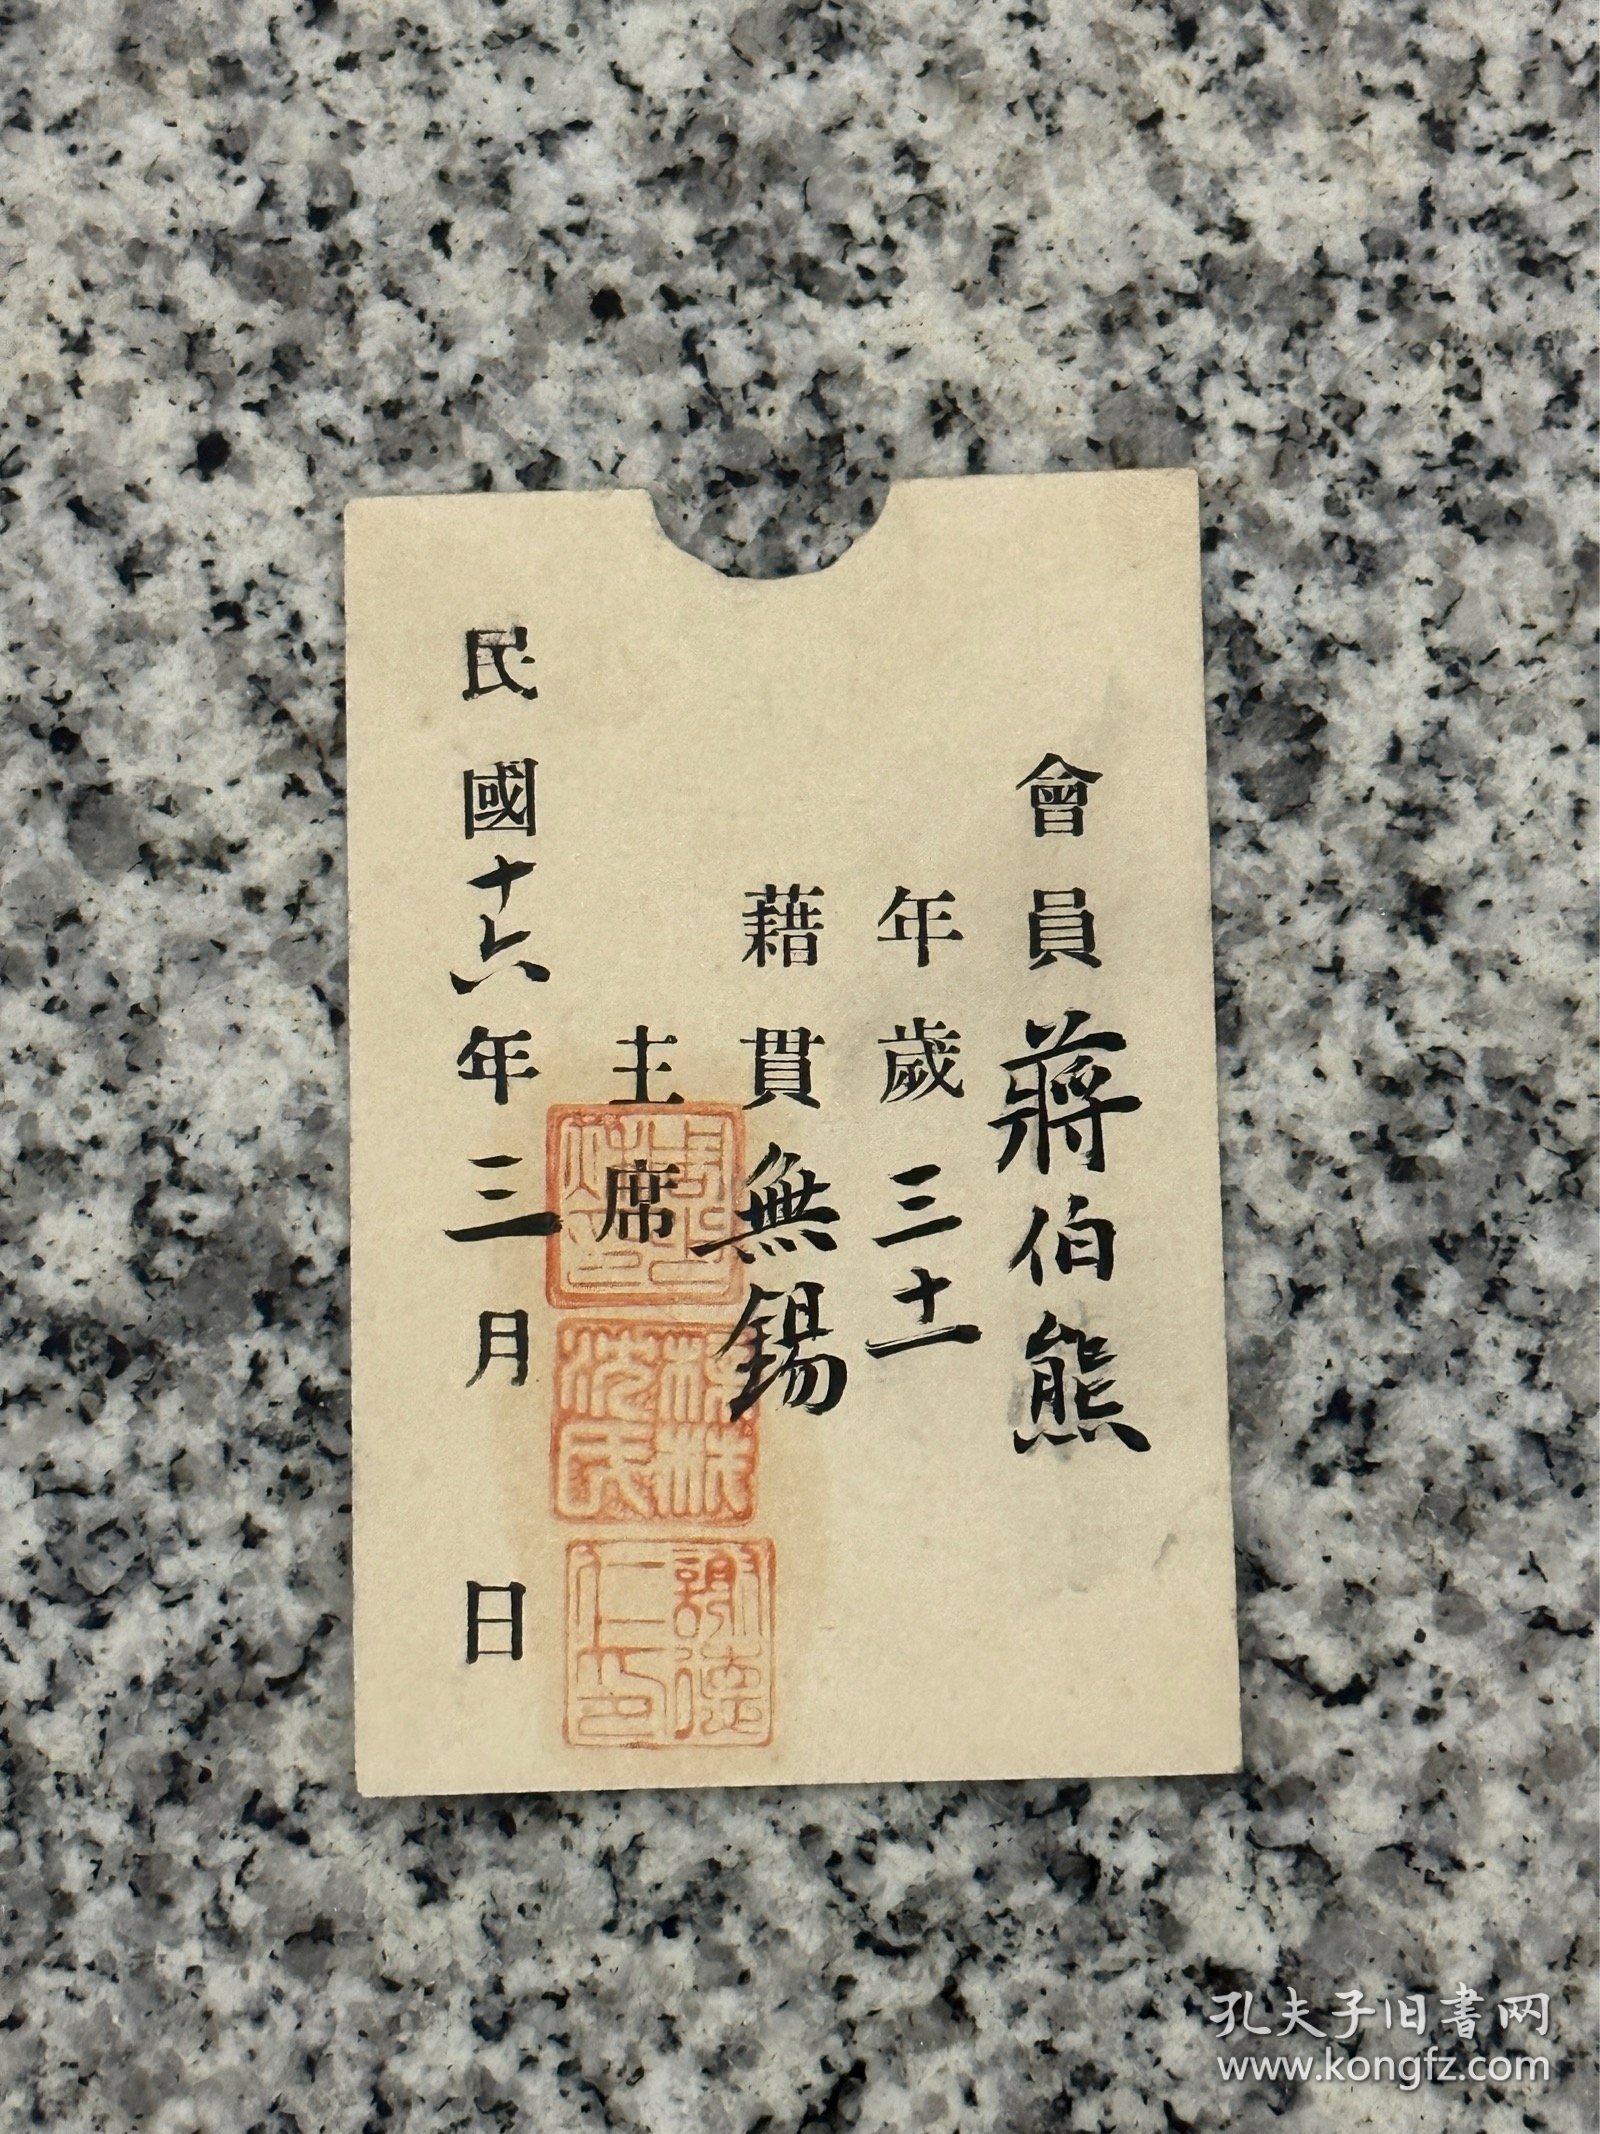 會員蔣伯熊
年歲三十一
藉貫無錫
主席
謝德仁印
民國十六年三月 日
孔夫子旧書网
www.kongfz.com